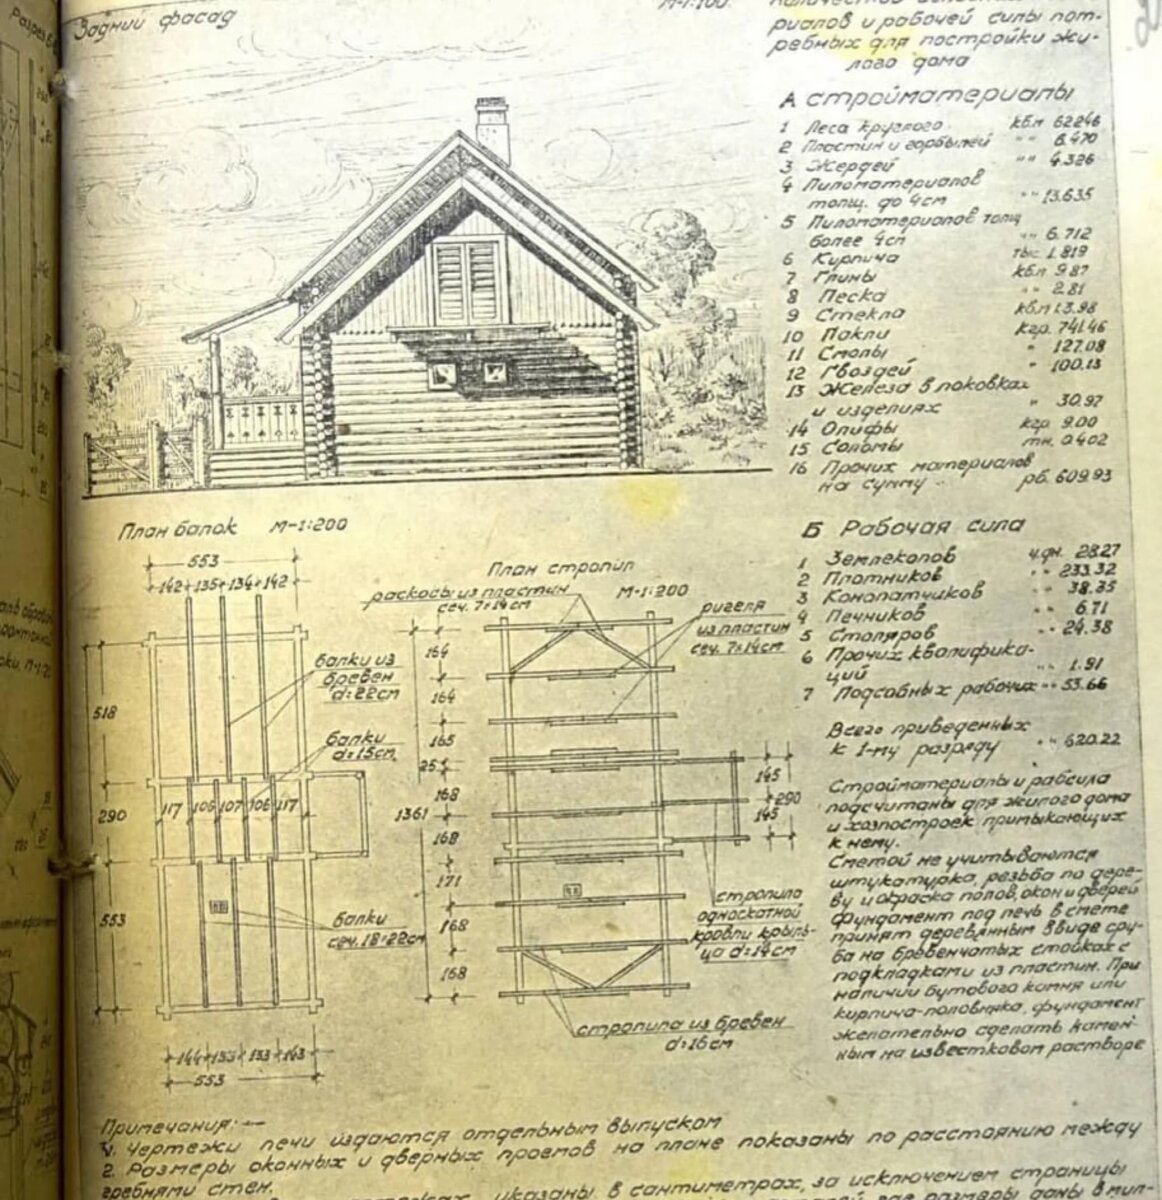 Задний фасад
М-1:100.
риалов и рабочей силы пот-
ребных для постройки жи-
лого дома
А стройматериалы
1 Леса круглого кб.м 62246
2 Пластин и горбылей " " 6.470
3 Жердей " " 4.326
4 Пиломатериалов
толщ. до 4 см " " 13.635
5 Пиломатериалов толщ
более 4 см " " 6.712
6 Кирпича тыс. 1.819
7 Глины кб.м 9.87
8 Песка " 2.81
9 Стекла кб.м 13.98
10 Пакли кгр. 741.46
11 Смолы " 127.08
12 Гвоздей " 100.13
13 Железа в поковках
и изделиях " 30.97
14 Олифы кгр 9.00
15 Соломы тн. 0.402
16 Прочих материалов
на сумму рб. 609.93
План балок М-1:200
553
142 135 134 142
518
290
553
балки из
бревен
d=22см
балки
d=15см
117 106 107 106 117
балки
сеч. 18×22см
144 133 133 143
553
План стропил
М-1:200
раскосы из пластин
сеч. 7×14см
ригеля
из пластин
сеч. 7×14см
164
164
165
25
168
1361
168
171
168
168
145
290
145
стропила
односкатной
кровли крыль-
ца d=14см
стропила из бревен
d=16см
Б Рабочая сила
1 Землекопов ч.дн. 28.27
2 Плотников " " 233.32
3 Конопатчиков " " 38.35
4 Печников " " 6.71
5 Столяров " " 24.38
6 Прочих квалифика-
ций " " 1.91
7 Подсобных рабочих " " 53.66
Всего приведенных
к 1-му разряду " " 620.22
Стройматериалы и рабсила
подсчитаны для жилого дома
и хозпостроек примыкающих
к нему.
Сметой не учитываются
штукатурка, резьба по дере-
ву и окраска полов, окон и дверей
Фундамент под печь в смете
принят деревянным в виде сру-
ба на бревенчатых стойках с
подкладками из пластин. При
наличии бутового камня или
кирпича-половняка, фундамент
желательно сделать камен-
ным на известковом растворе
Примечания:—
1. Чертежи печи издаются отдельным выпуском
2. Размеры оконных и дверных проемов на плане показаны по расстоянию между
гребнями стен.
указаны в сантиметрах, за исключением страницы
размеры даны в мил-